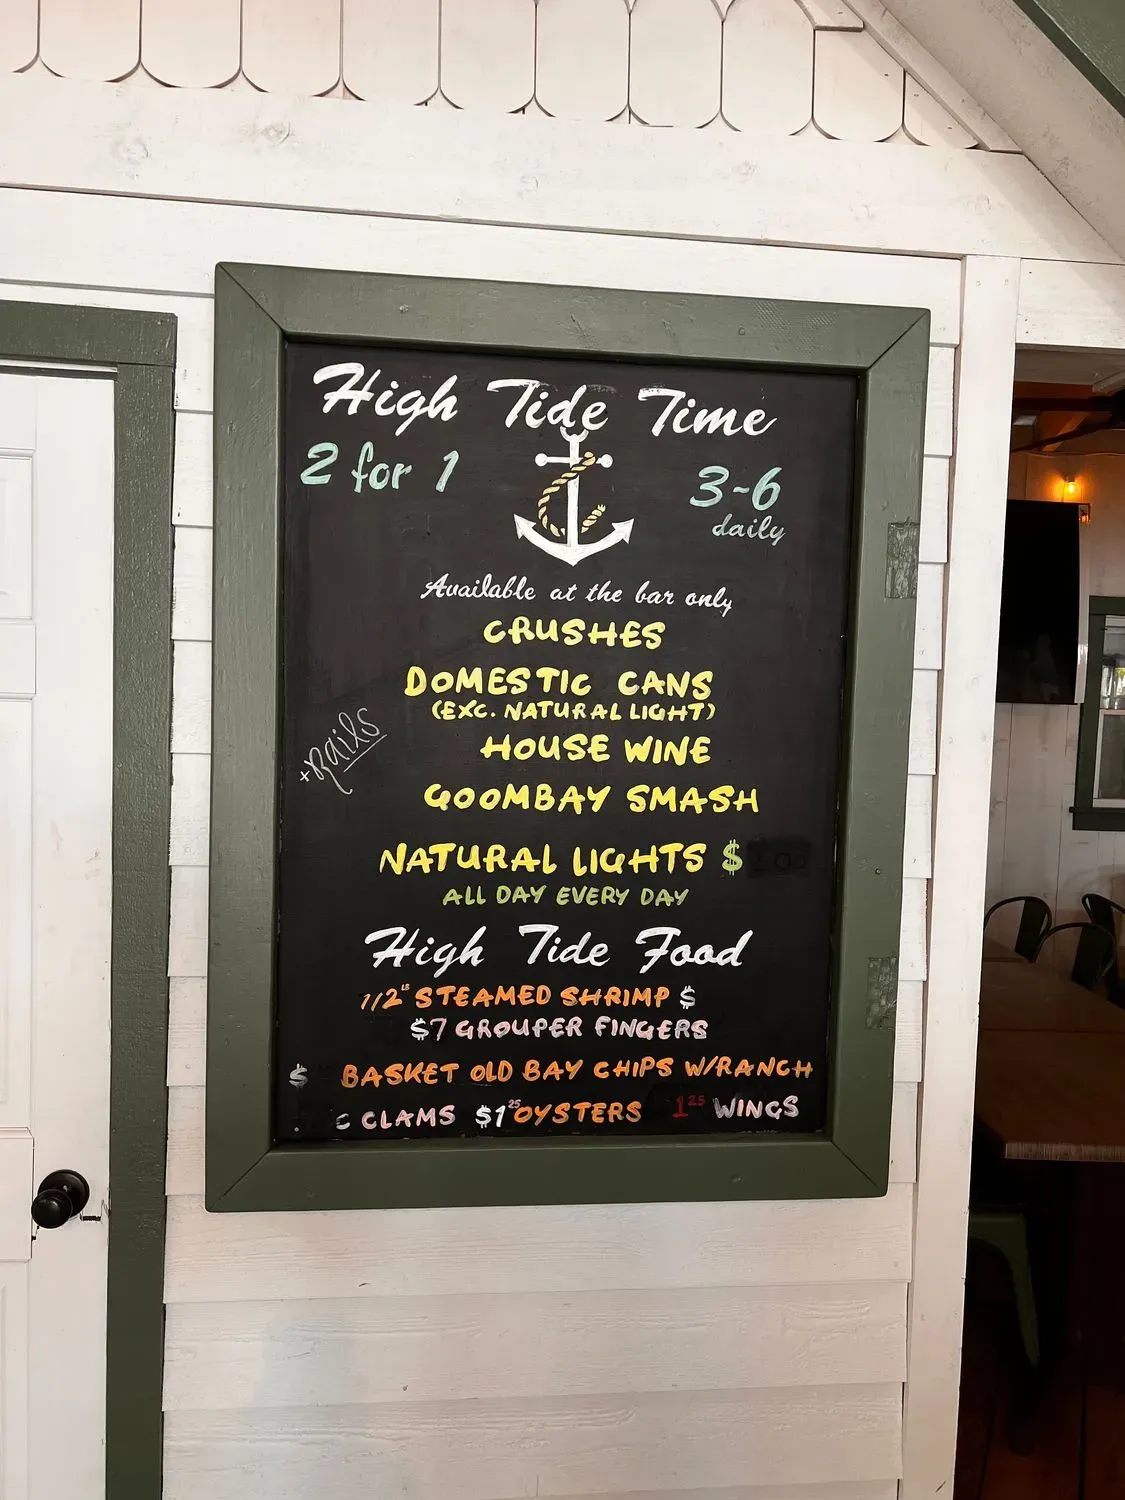 High Tide Time
2 for 1
3-6
daily
Available at the bar only
CRUSHES
DOMESTIC CANS
(EXC. NATURAL LIGHT)
HOUSE WINE
+Rails
GOOMBAY SMASH
NATURAL LIGHTS $
ALL DAY EVERY DAY
High Tide Food
1/2 LB STEAMED SHRIMP $
$7 GROUPER FINGERS
$ BASKET OLD BAY CHIPS W/RANCH
CLAMS $1 25 OYSTERS 1 25 WINGS